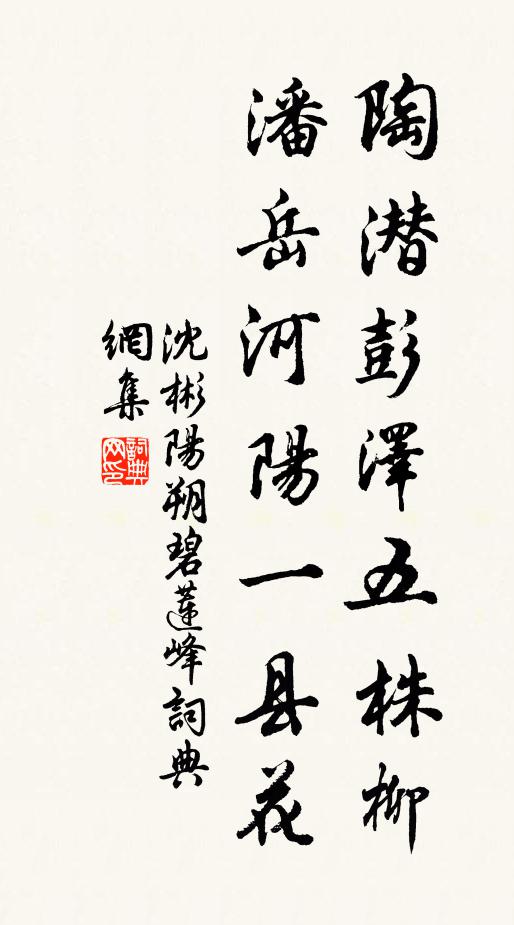 陶潛彭澤五株柳
潘岳河陽一县花
沈彬陽朔碧蓮峰詞典
網集
詞典
网印